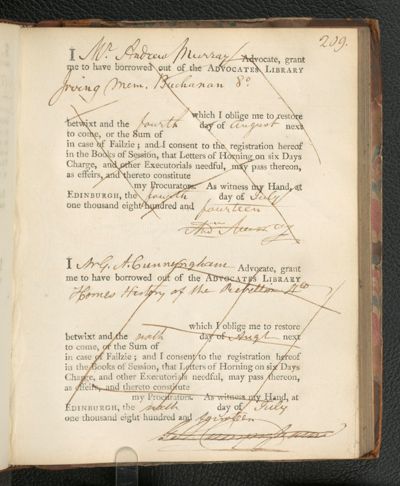 209.
I Mr. Andrew Murray Advocate, grant
me to have borrowed out of the ADVOCATES LIBRARY
Irving Mem. Buchanan 8o
which I oblige me to restore
betwixt and the fourth day of August next
to come, or the Sum of
in case of Failzie; and I consent to the registration hereof
in the Books of Session, that Letters of Horning on six Days
Charge, and other Executorials needful, may pass thereon,
as effeirs, and thereto constitute
my Procurators. As witness my Hand, at
EDINBURGH, the fourth day of July
one thousand eight hundred and fourteen
And Murray
I Mr G. A. Cunninghame Advocate, grant
me to have borrowed out of the ADVOCATES LIBRARY
Homes History of the Rebellion 4to
which I oblige me to restore
betwixt and the sixth day of Augt next
to come, or the Sum of
in case of Failzie; and I consent to the registration hereof
in the Books of Session, that Letters of Horning on six Days
Charge, and other Executorials needful, may pass thereon,
as effeirs, and thereto constitute
my Procurators. As witness my Hand, at
EDINBURGH, the sixth day of July
one thousand eight hundred and fourteen
Cunninghame